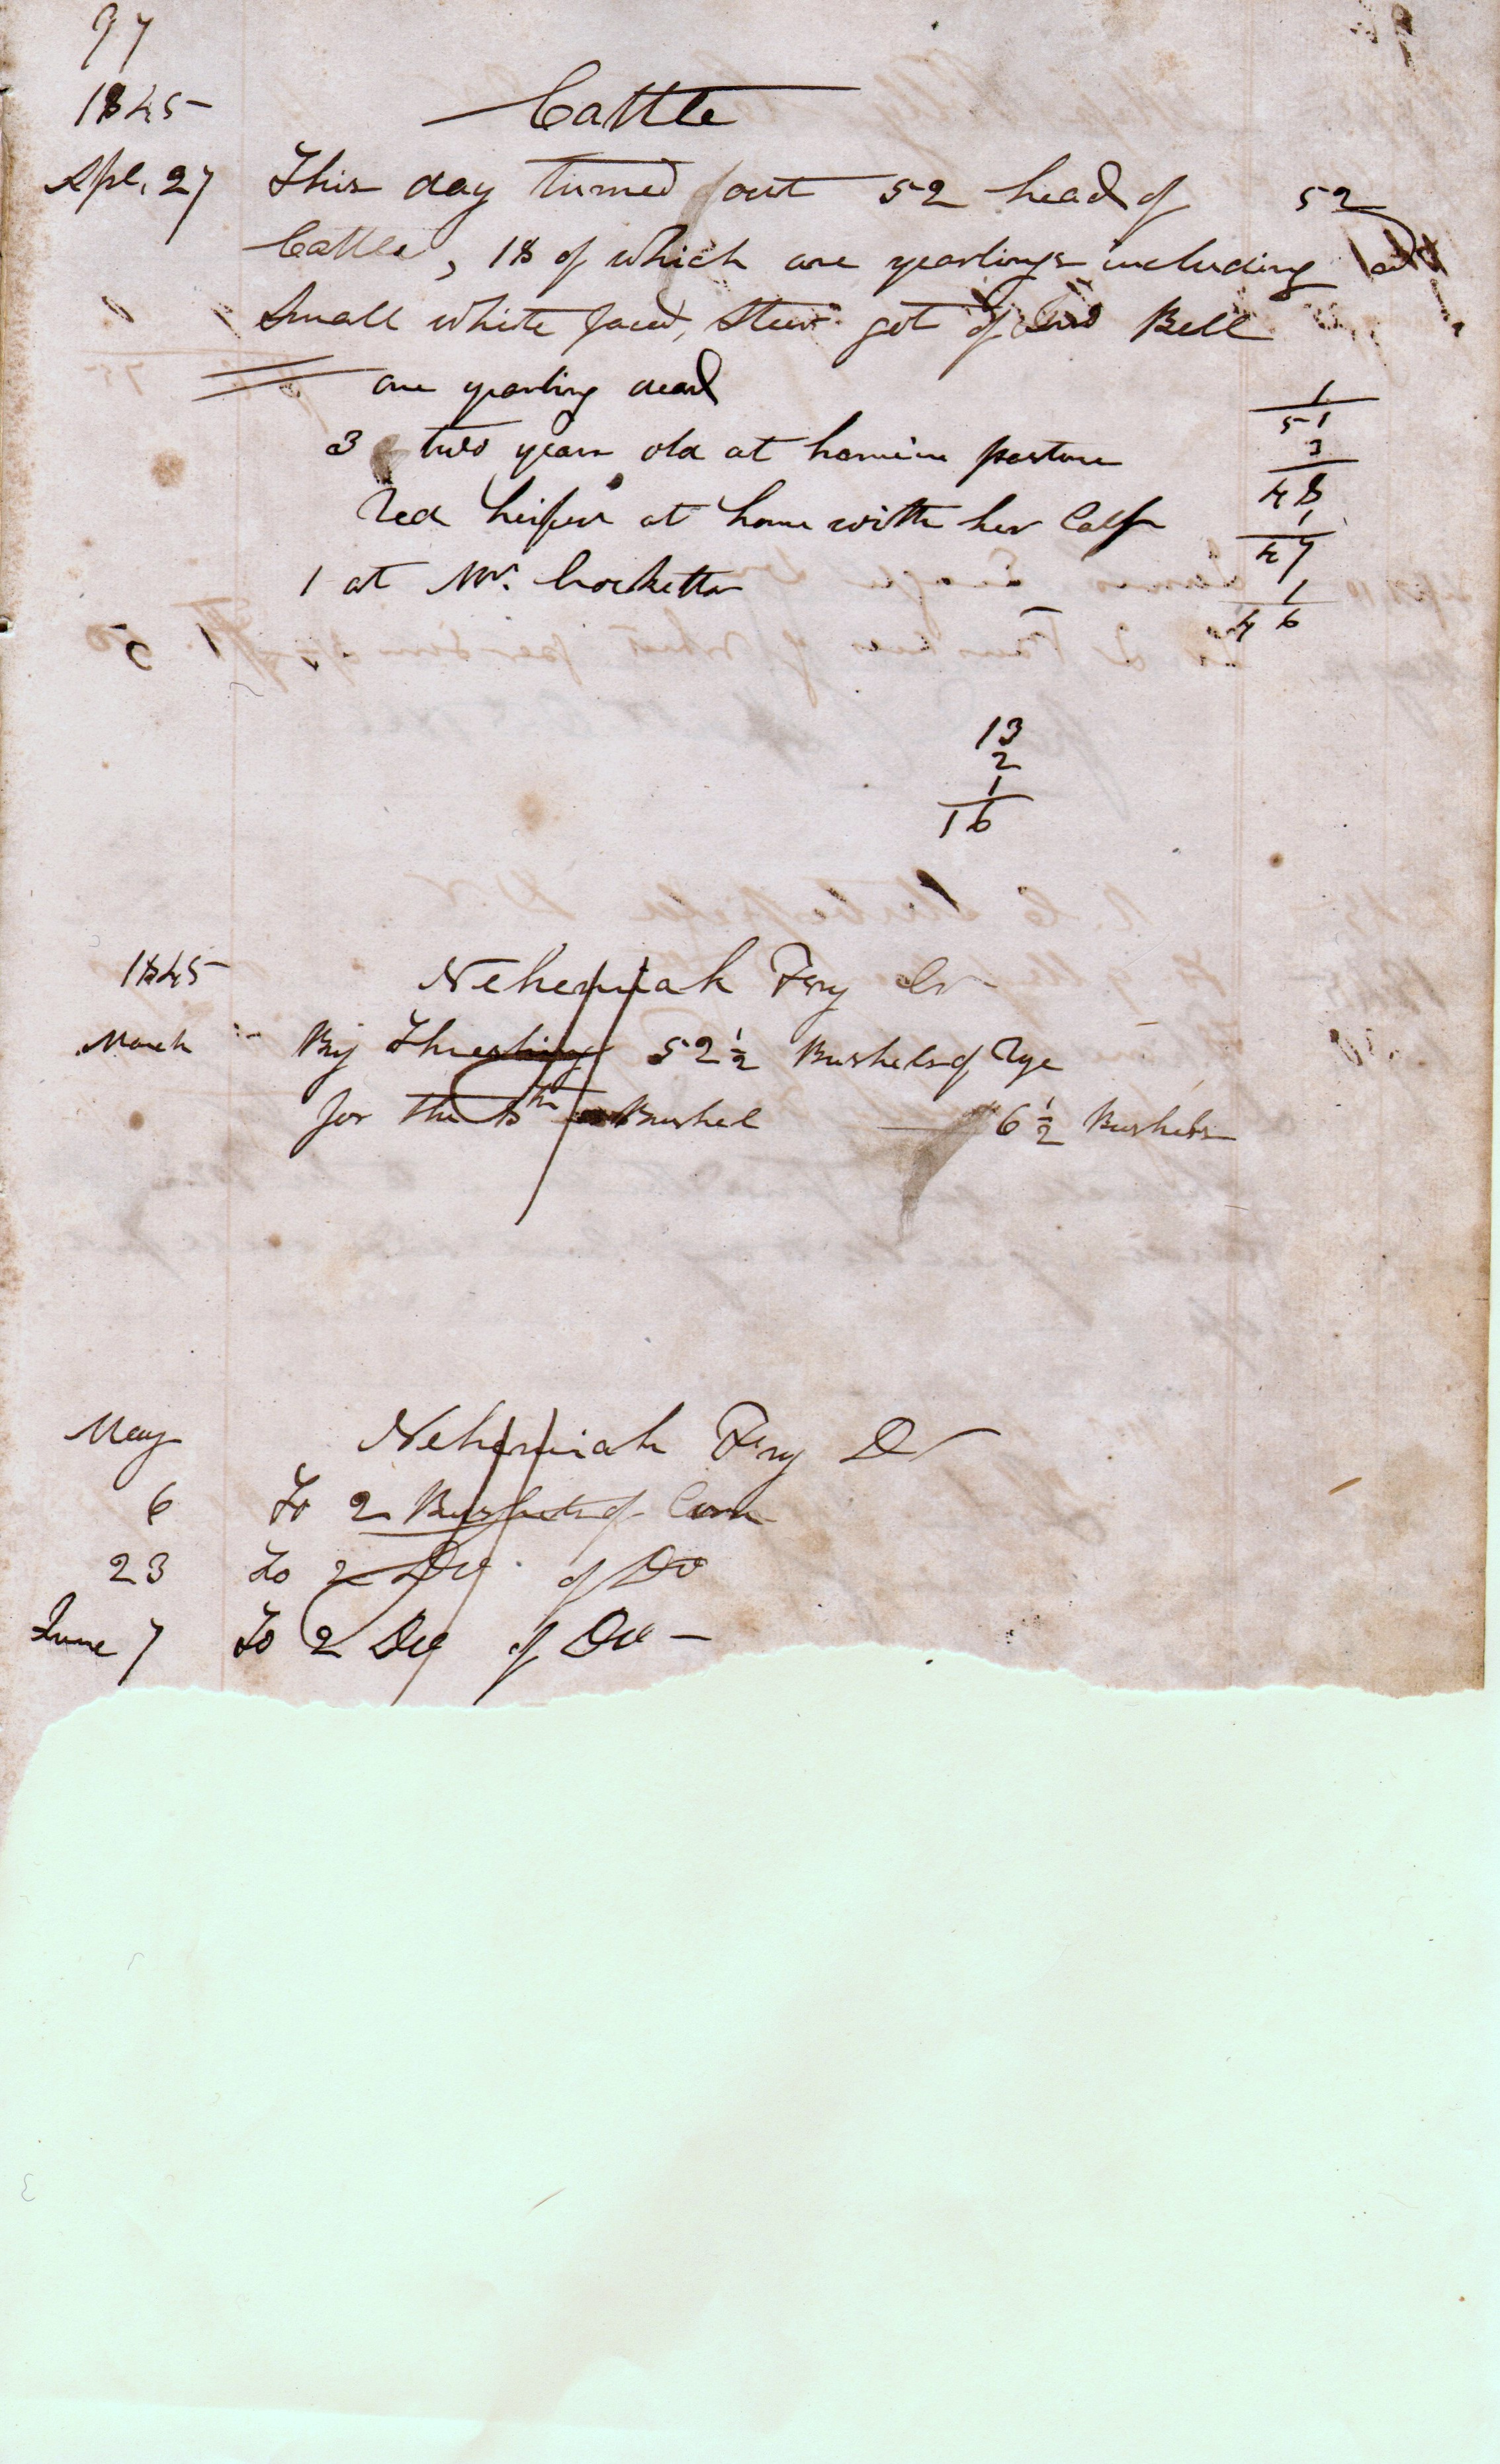 97
1845
Cattle
Apl. 27 This day turned out 52 head of 52
Cattle, 18 of which are yearlings including a
Small white faced, Steer got of Bell
one yearling dead 1
51
3 two years old at home in pasture 3
48
Red heifer at home with her Calf 1
47
1 at Mr. Crocketts 1
46
13
2
1
16
1845 Nehemiah Fry Cr
March By Threshing 52 1/2 Bushels of Rye
for the 8th Bushel 6 1/2 Bushels
May Nehemiah Fry Dr
6 To 2 Bushels of Corn
23 To 2 Do of Do
June 7 To 2 Do of Do -